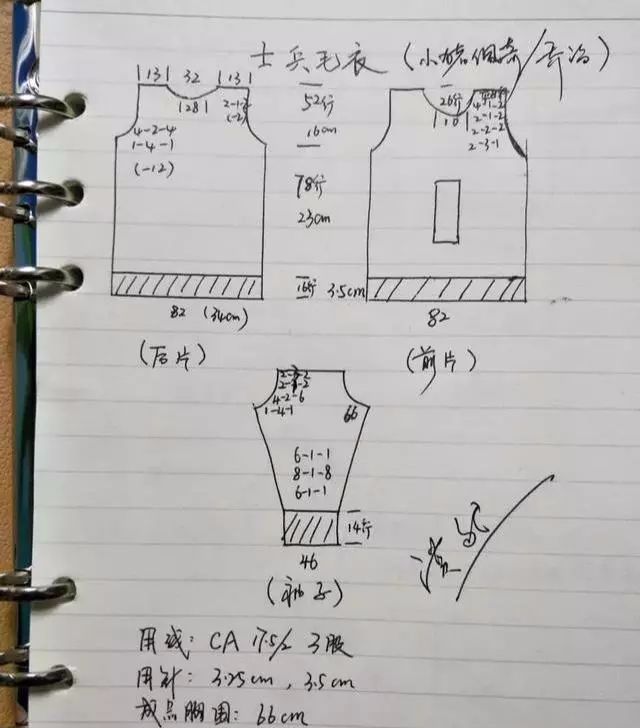 士兵毛衣
|13| 32 |13|
|28|
2-1-2
(-2)
4-2-4
1-4-1
(-12)
82 (34cm)
(后片)
52行
16cm
78行
23cm
16行 3.5cm
26行
|10|
4-1-2
2-1-2
2-2-2
2-3-1
82
(前片)
4-2-6
1-4-1
66
6-1-1
8-1-8
6-1-1
14行
46
(袖子)
用线: CA 17.5/2 3股
用针: 3.25cm, 3.5cm
成点脚围: 66cm